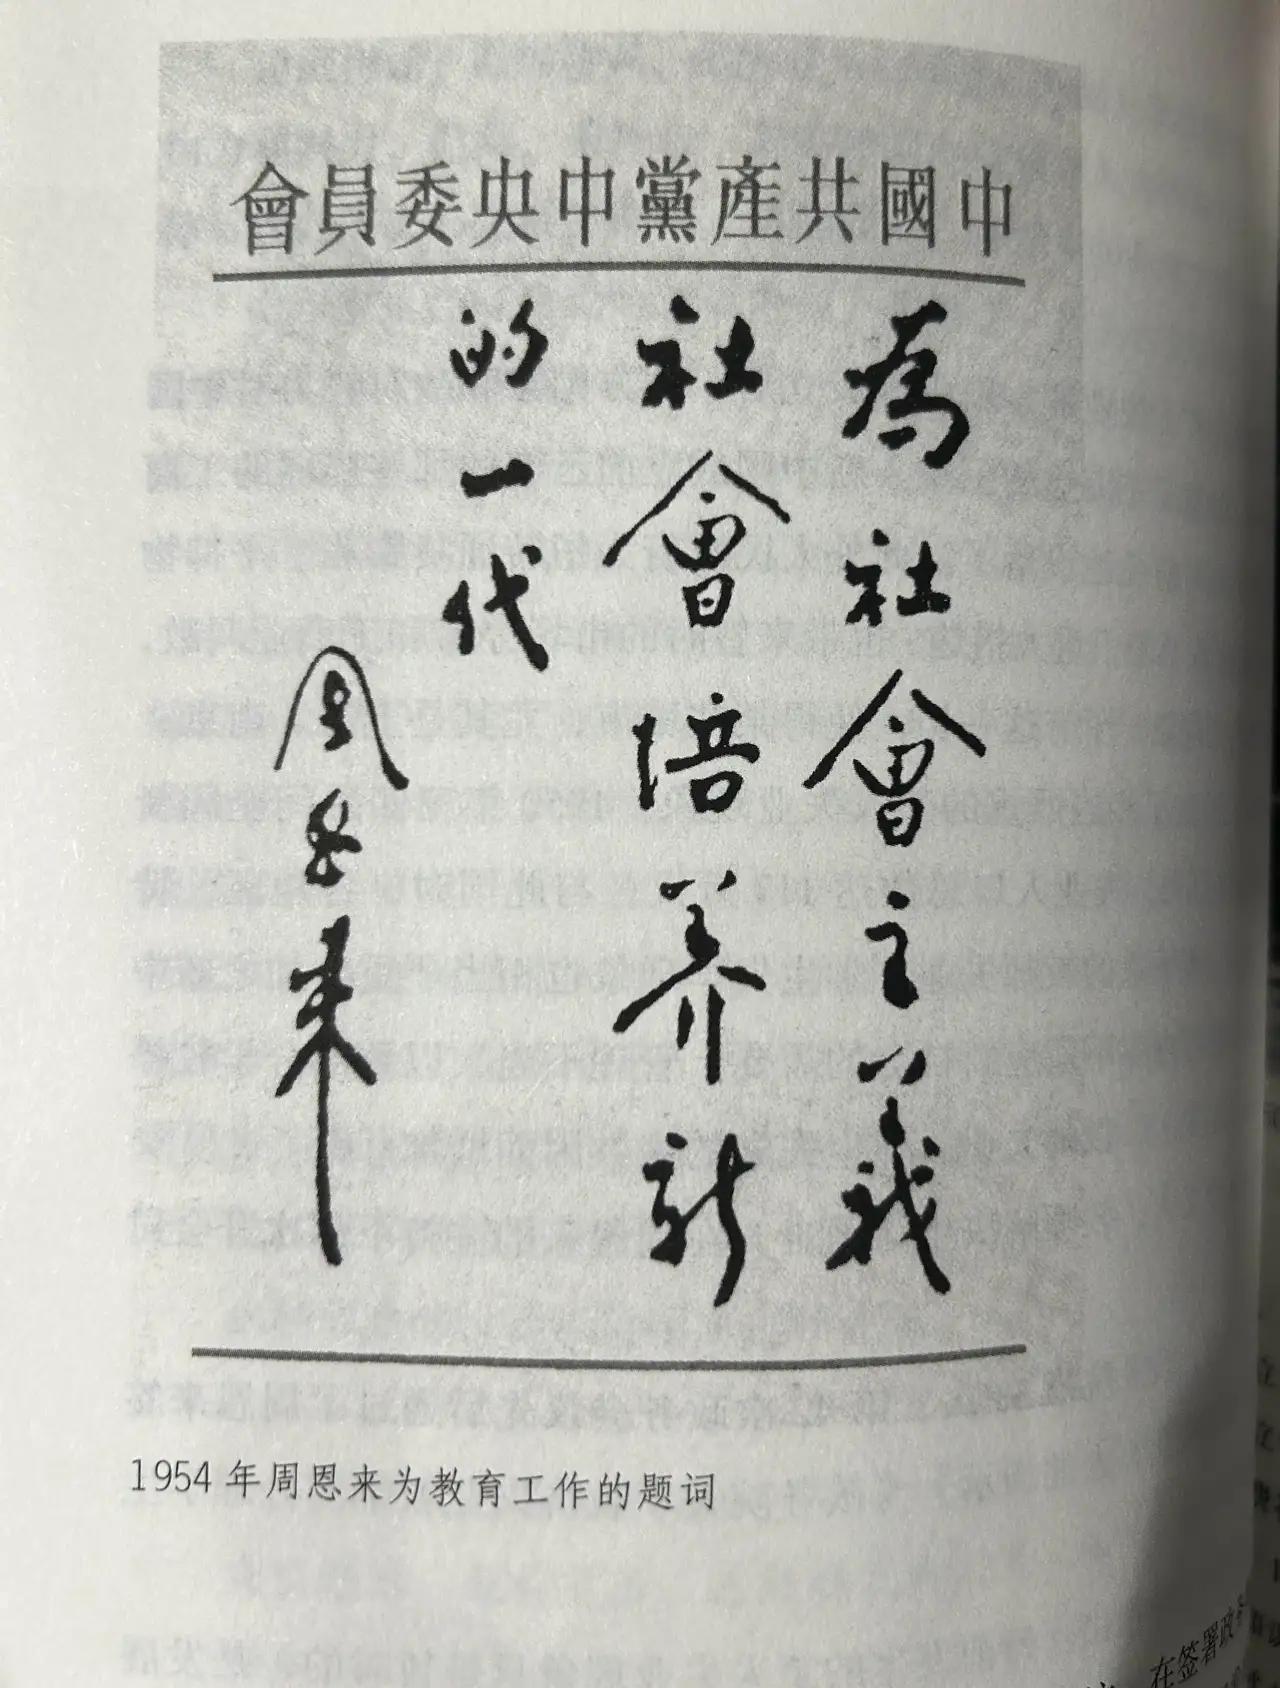 中國共產黨中央委員會
為社會主義
社會培养新
的一代
周恩来
1954年周恩来为教育工作的题词
在签署政